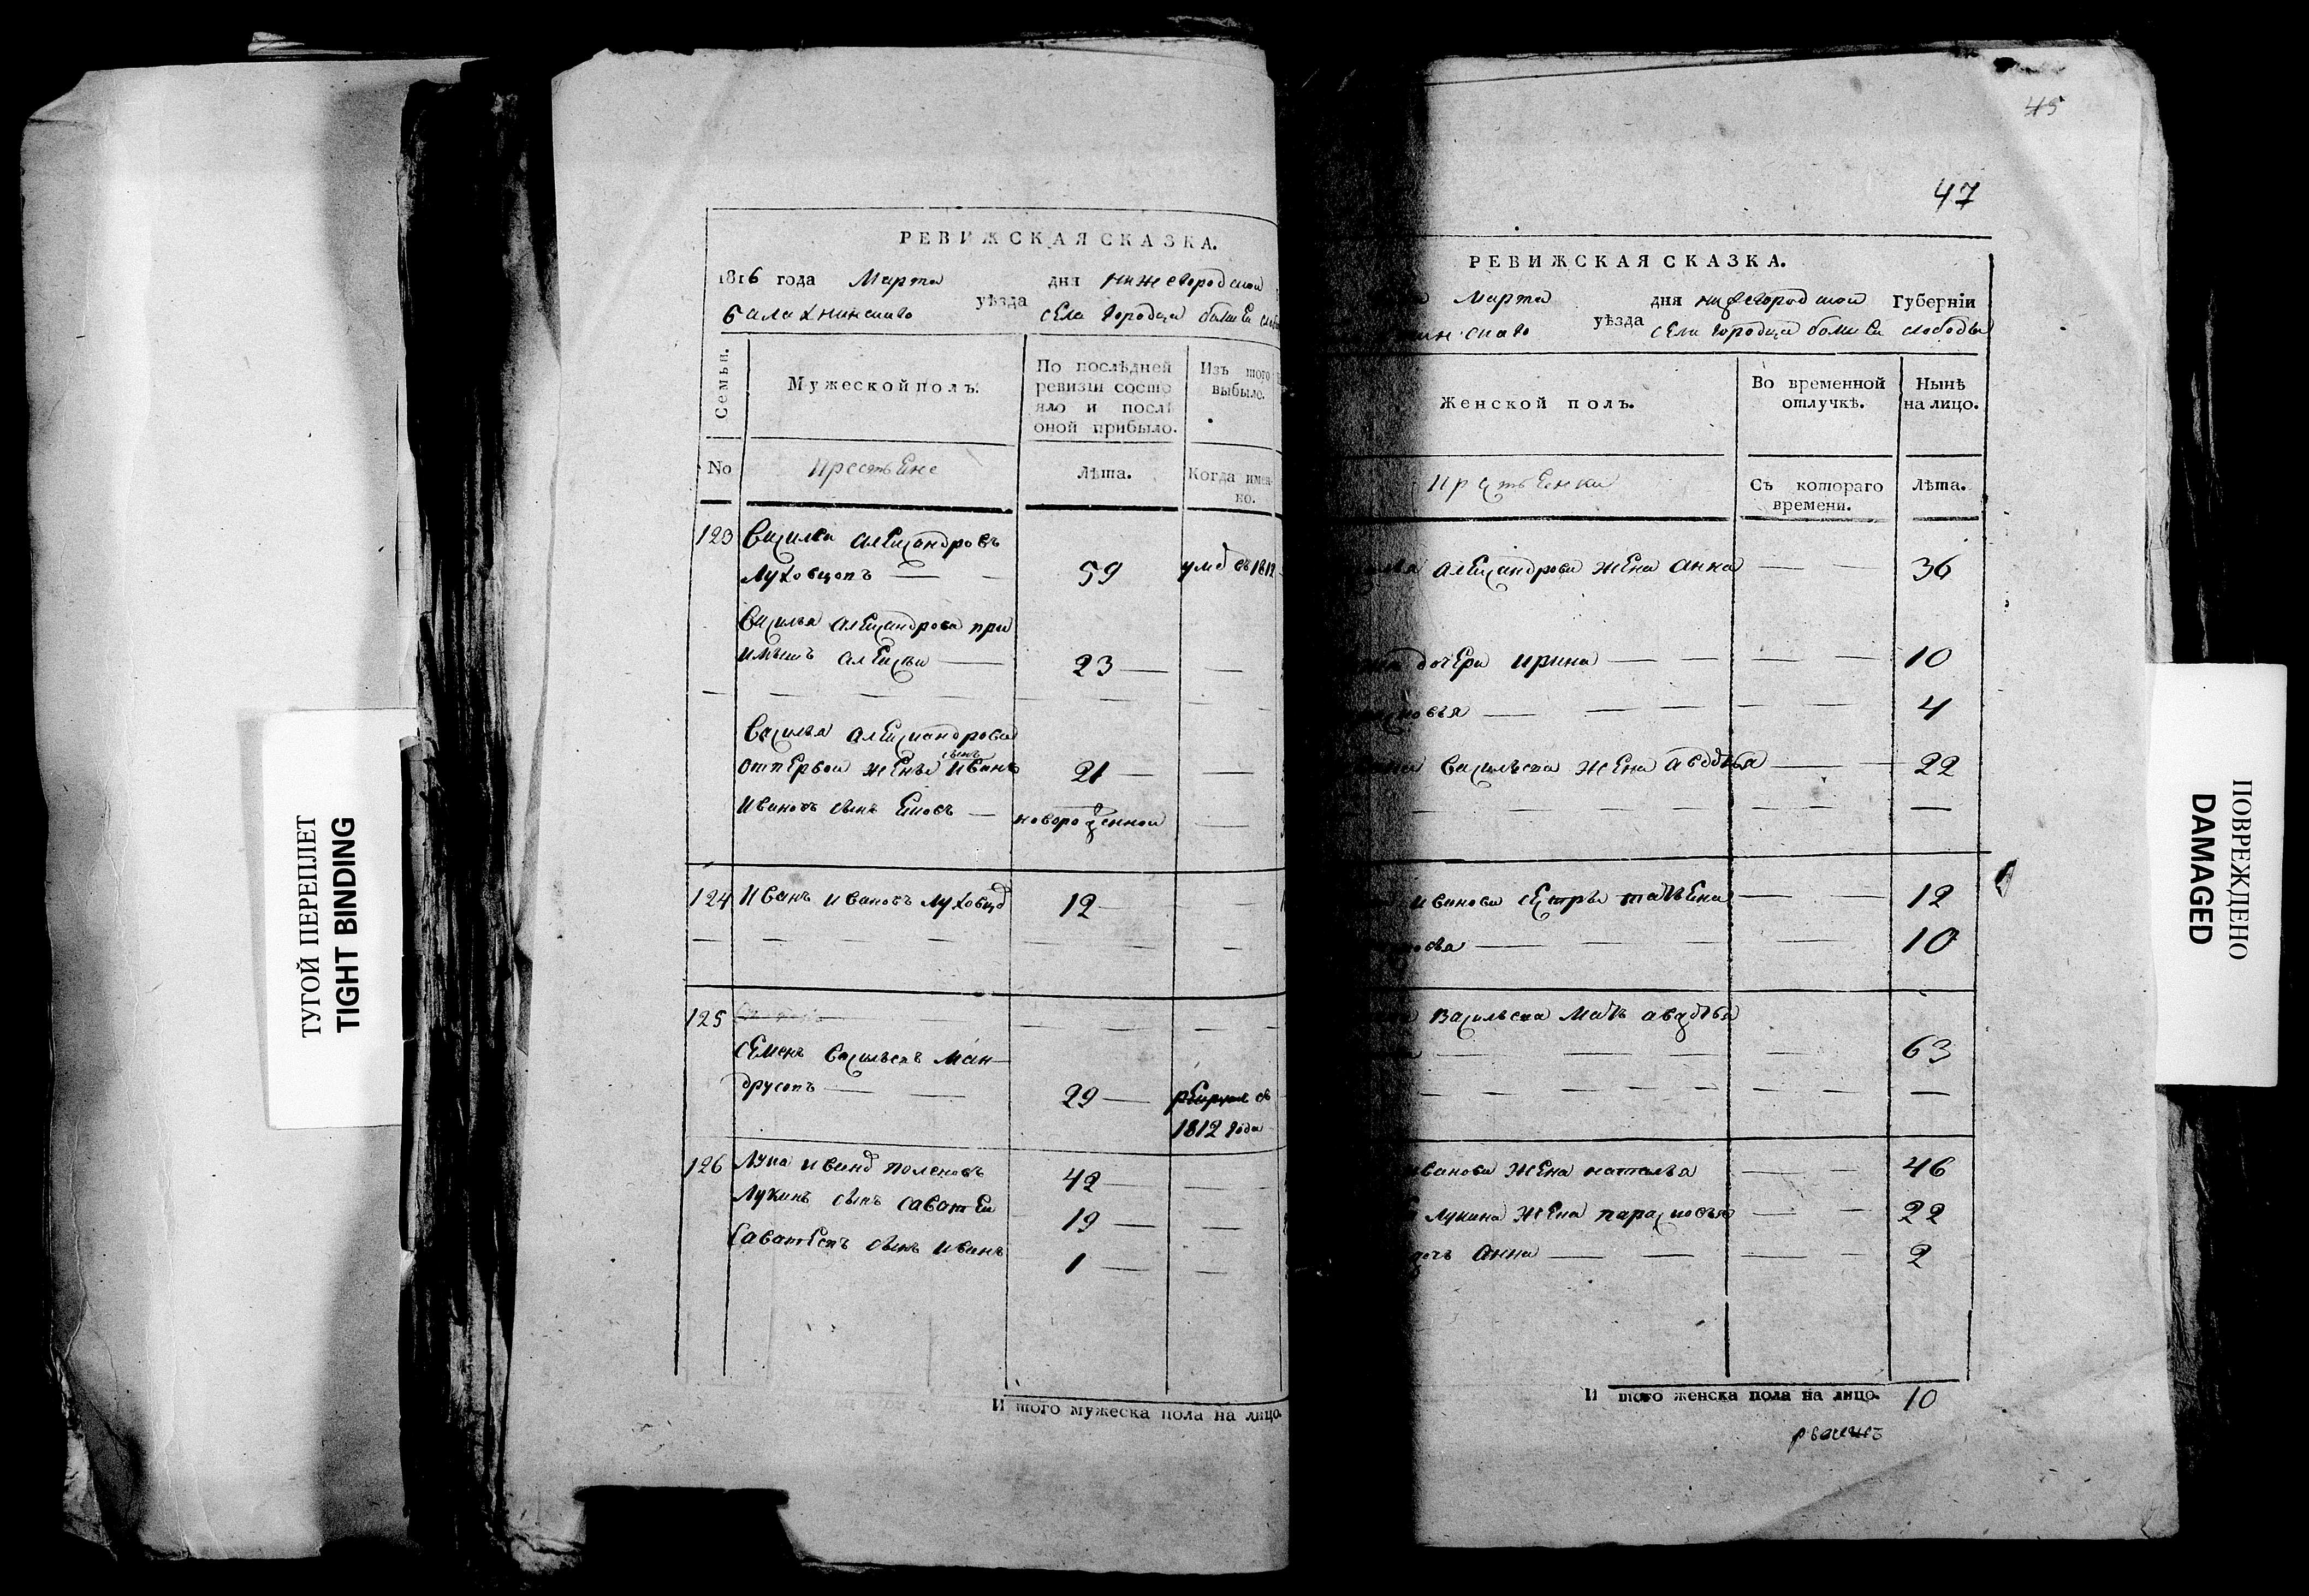 ТУГОЙ ПЕРЕПЛЕТ
TIGHT BINDING
РЕВИЖСКАЯ СКАЗКА.
1816 года Марта дня нижегородской
балахнинскаго уѣзда села городца болшей слобо
Семьи.
Мужеской полъ.
По послѣдней
ревизіи состо
яло и послѣ
оной прибыло.
Изъ того
выбыло.
No
крестьяне
Лѣта.
Когда имен-
но.
123 Василеи александровъ
Луховцовъ — 59 умѣ въ 1812
Василья александрова при
имышъ алексѣи — 23 —
Василья александрова
сынъ
отпервои жены Иванъ 21 —
Ивановъ сынъ Яковъ — новорожденной
124 Иванъ Ивановъ Луховцо 12
125
семенъ васильевъ ман
друсовъ — 29 — рекрутѣ въ
1812 года
126 Лука иванов поленовъ 42 —
Лукинъ сынъ саватеи 19 —
Саватеевъ сынъ иванъ 1 —
И того мужеска пола на лицо.
45
47
РЕВИЖСКАЯ СКАЗКА.
Марта дня нижегородской Губерніи
уѣзда села городца болшеи слободы
Женской полъ.
Во временной
отлучкѣ.
Нынѣ
на лицо.
крестьянки
Съ котораго
времени.
Лѣта.
александрова жена анна — 36
дочери ирина — 10
4
васильева жена авдотья — 22
иванова сестры татьяна — 12
10
васильева мать авдотья
63
иванова жена наталья — 46
лукина жена парасковья — 22
дочь анна — 2
И того женска пола на лицо. 10
ПОВРЕЖДЕНО
DAMAGED